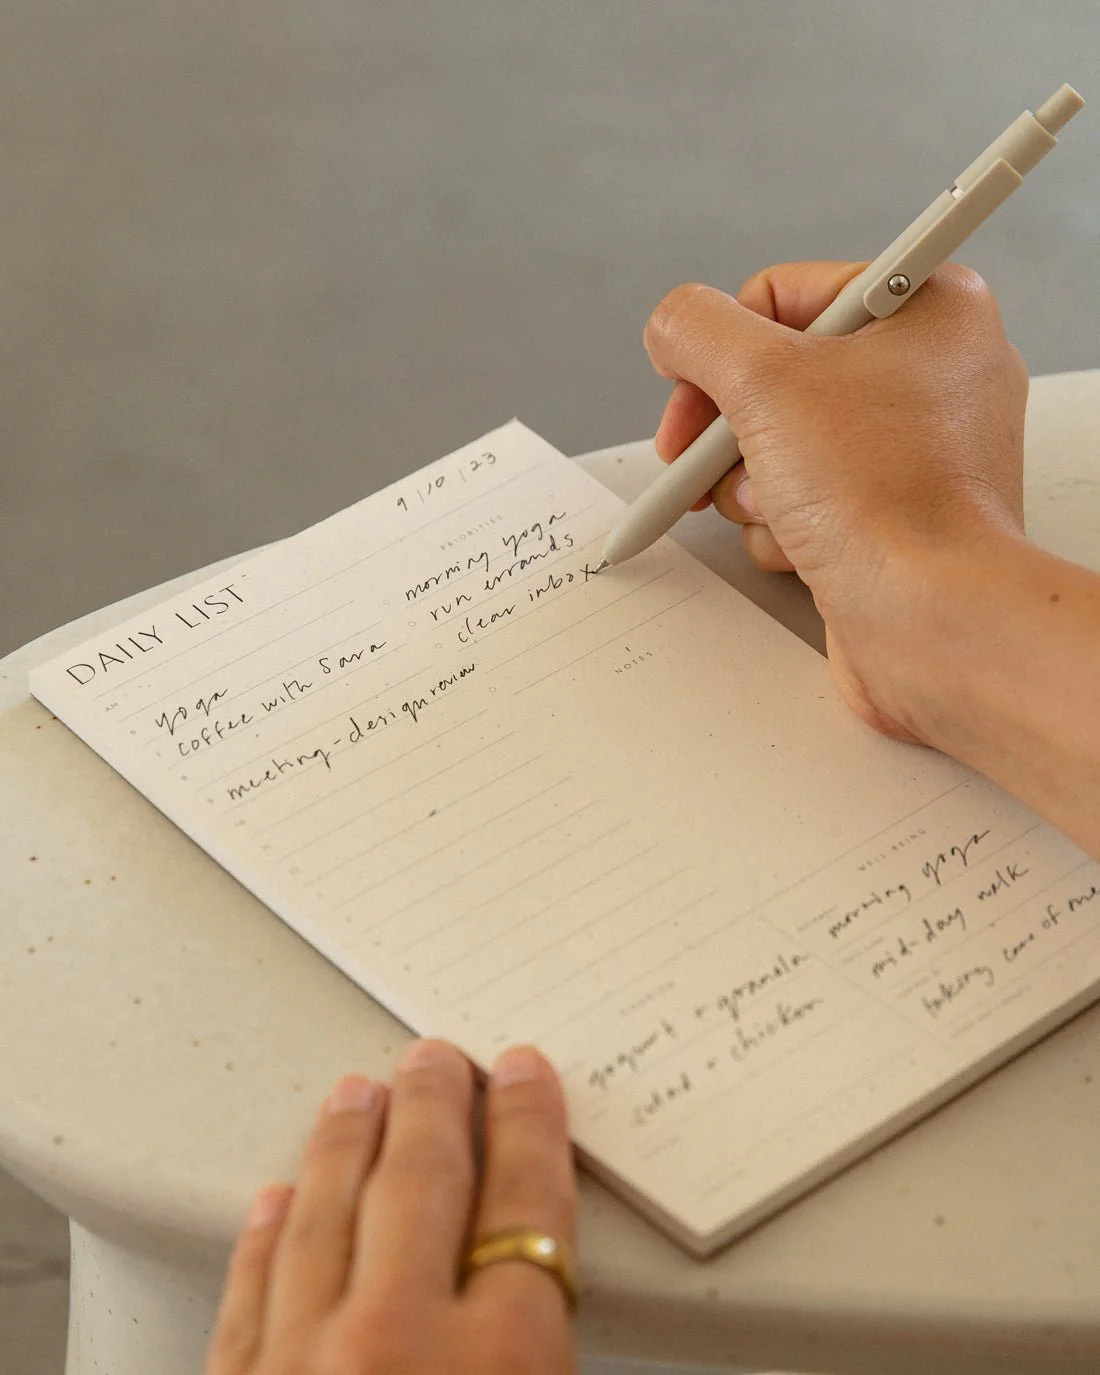 9/10/23
DAILY LIST
PRIORITIES
morning yoga
run errands
clear inbox
AM
6 yoga
7 coffee with Sara
8
9 meeting - design review
10
NOTES
WELL-BEING
morning yoga
mid-day walk
taking care of me
yogurt + granola
salad + chicken